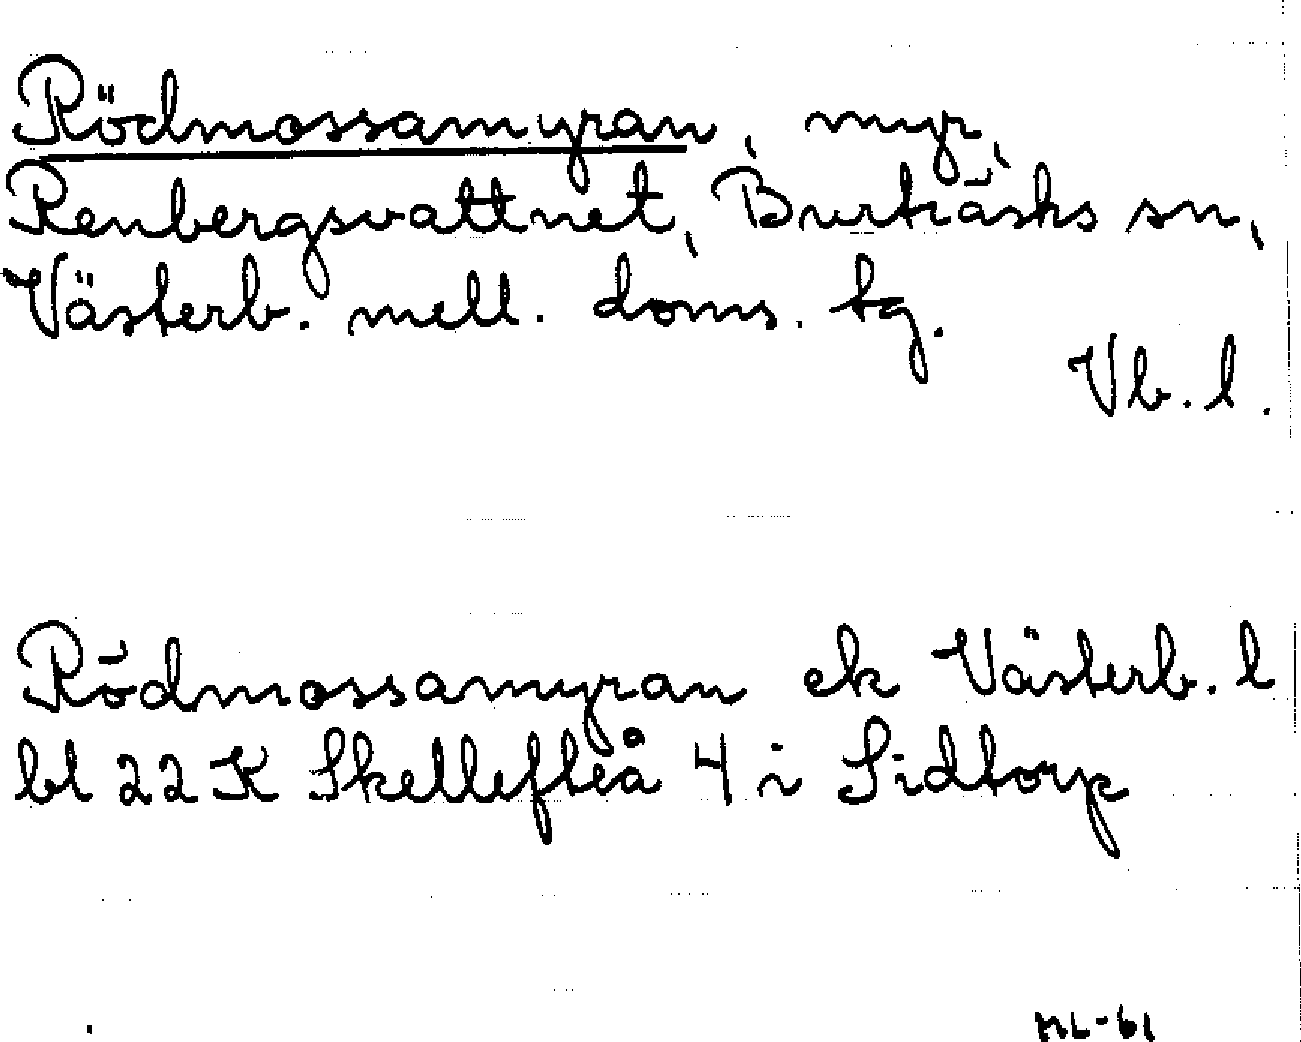 Rödmossamyran, myr,
Renbergsvattnet, Burträsks sn,
Västerb. mell. doms. tg.
Vb. l.
Rödmossamyran ek Västerb. l
bl 22 K Skellefteå 4 i Sidtorp
ML-61